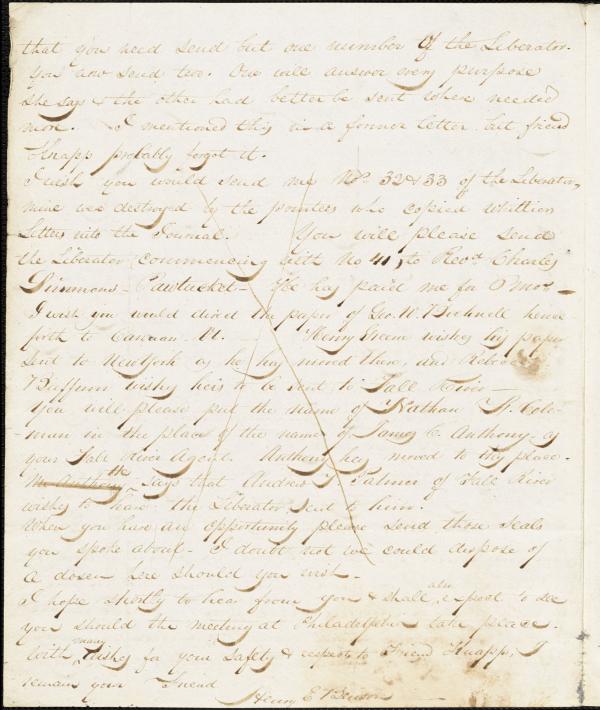 that you need send but one number of the Liberator.
You now send two. One will answer every purpose
she says & the other had better be sent where needed
more. I mentioned this in a former letter, but friend
Knapp probably forgot it.
I wish you would send me Nos. 32 & 33 of the Liberator,
mine were destroyed by the printers who copied Whittiers
Letters into the Journal. You will please send
the Liberator commencing with No 41, to Revd. Charles
Simmons - Pawtucket - He has paid me for 6 mos -
I wish you would direct the paper of Geo. W. Benson hence
forth to Canaan. Henry Greene wishes his paper
sent to New York as he has moved there, and Rebecca
Buffum wishes hers to be sent to Fall River -
You will please put the name of Nathan Cole-
man in the place of the name of James C. Anthony as
your Fall River Agent. Anthony has moved to this place.
Mr Anthony says that Andrew Palmer of Fall River
wishes to have the Liberator sent to him.
When you have an opportunity please send those seals
you spoke about - I doubt not we could dispose of
a dozen here should you wish -
I hope shortly to hear from you & shall also expect to see
you should the meeting at Philadelphia take place.
With many wishes for your safety & respects to Friend Knapp, I
remain your Friend
Henry E Benson